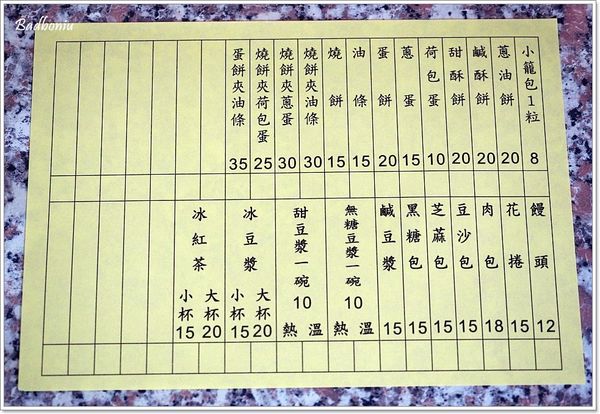 Badboniu
小籠包1粒 8
蔥油餅 20
鹹酥餅 20
甜酥餅 20
荷包蛋 10
蔥蛋 15
蛋餅 20
油條 15
燒餅 15
燒餅夾油條 30
燒餅夾蔥蛋 30
燒餅夾荷包蛋 25
蛋餅夾油條 35
饅頭 12
花捲 15
肉包 18
豆沙包 15
芝蔴包 15
黑糖包 15
鹹豆漿 15
無糖豆漿一碗 10 溫 熱
甜豆漿一碗 10 溫 熱
冰豆漿 大杯20 小杯15
冰紅茶 大杯20 小杯15